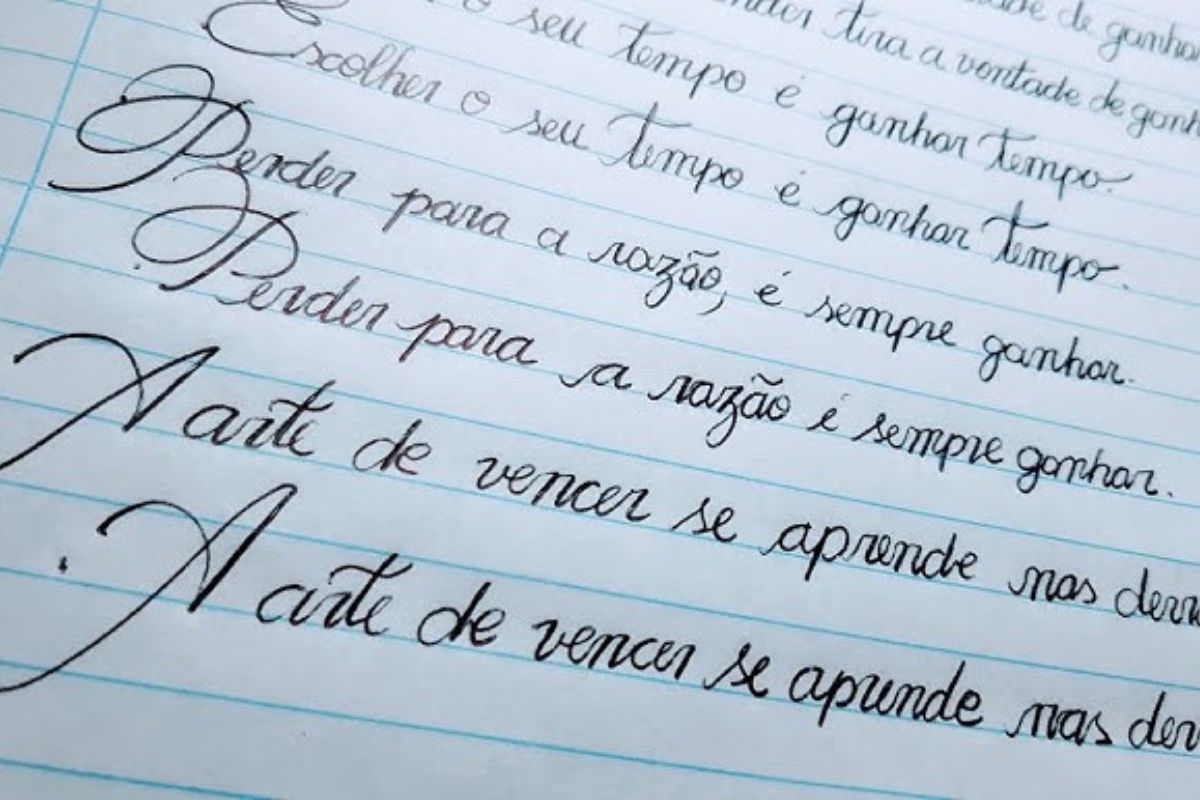 de ganhar
tira a vontade de ganh
o seu tempo é ganhar tempo.
Escolher o seu tempo é ganhar tempo.
Perder para a razão, é sempre ganhar.
Perder para a razão é sempre ganhar.
A arte de vencer se aprende nas derr
A arte de vencer se aprende nas der